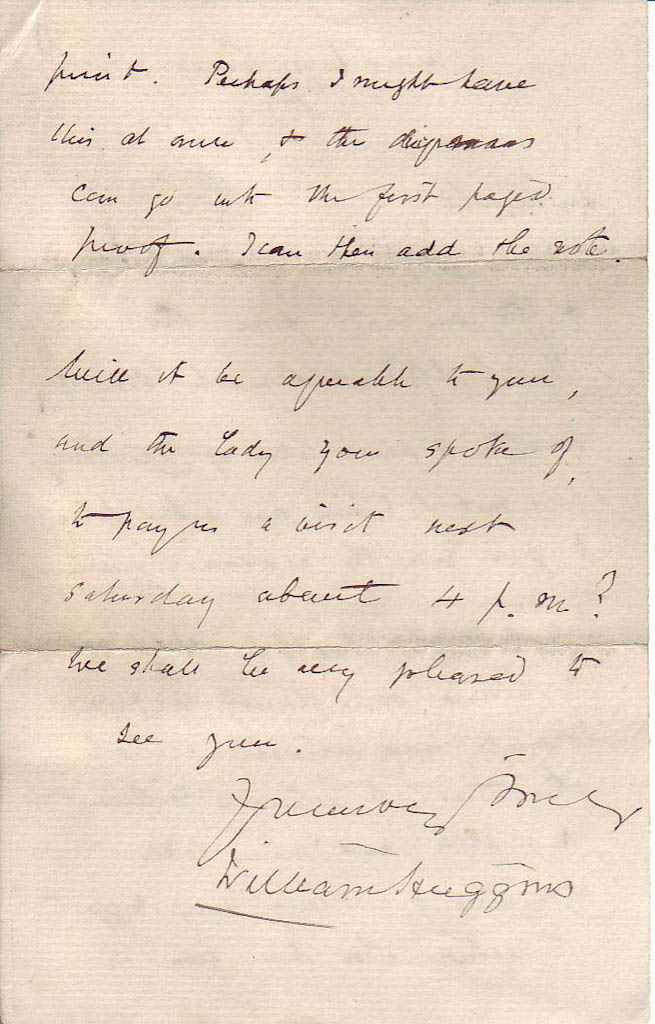 print. Perhaps I might have
this at once, & the diagrams
can go with the first paged
proof. I can then add the note.
Will it be agreeable to you,
and the lady you spoke of,
to pay us a visit next
Saturday about 4 p.m?
We shall be very pleased to
see you.
Yours very truly
William Huggins